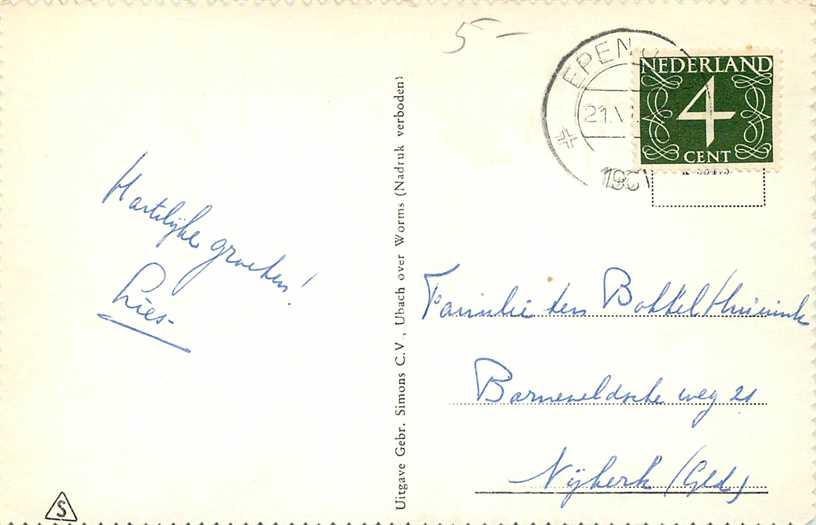 5-
EPEN
21.V
NEDERLAND
4
CENT
Hartelijke groeten!
Lies-
Uitgave Gebr. Simons C.V., Ubach over Worms (Nadruk verboden)
Familie den Bokkel Huinink
Barneveldsche weg 21
Nijkerk (Gld)
S